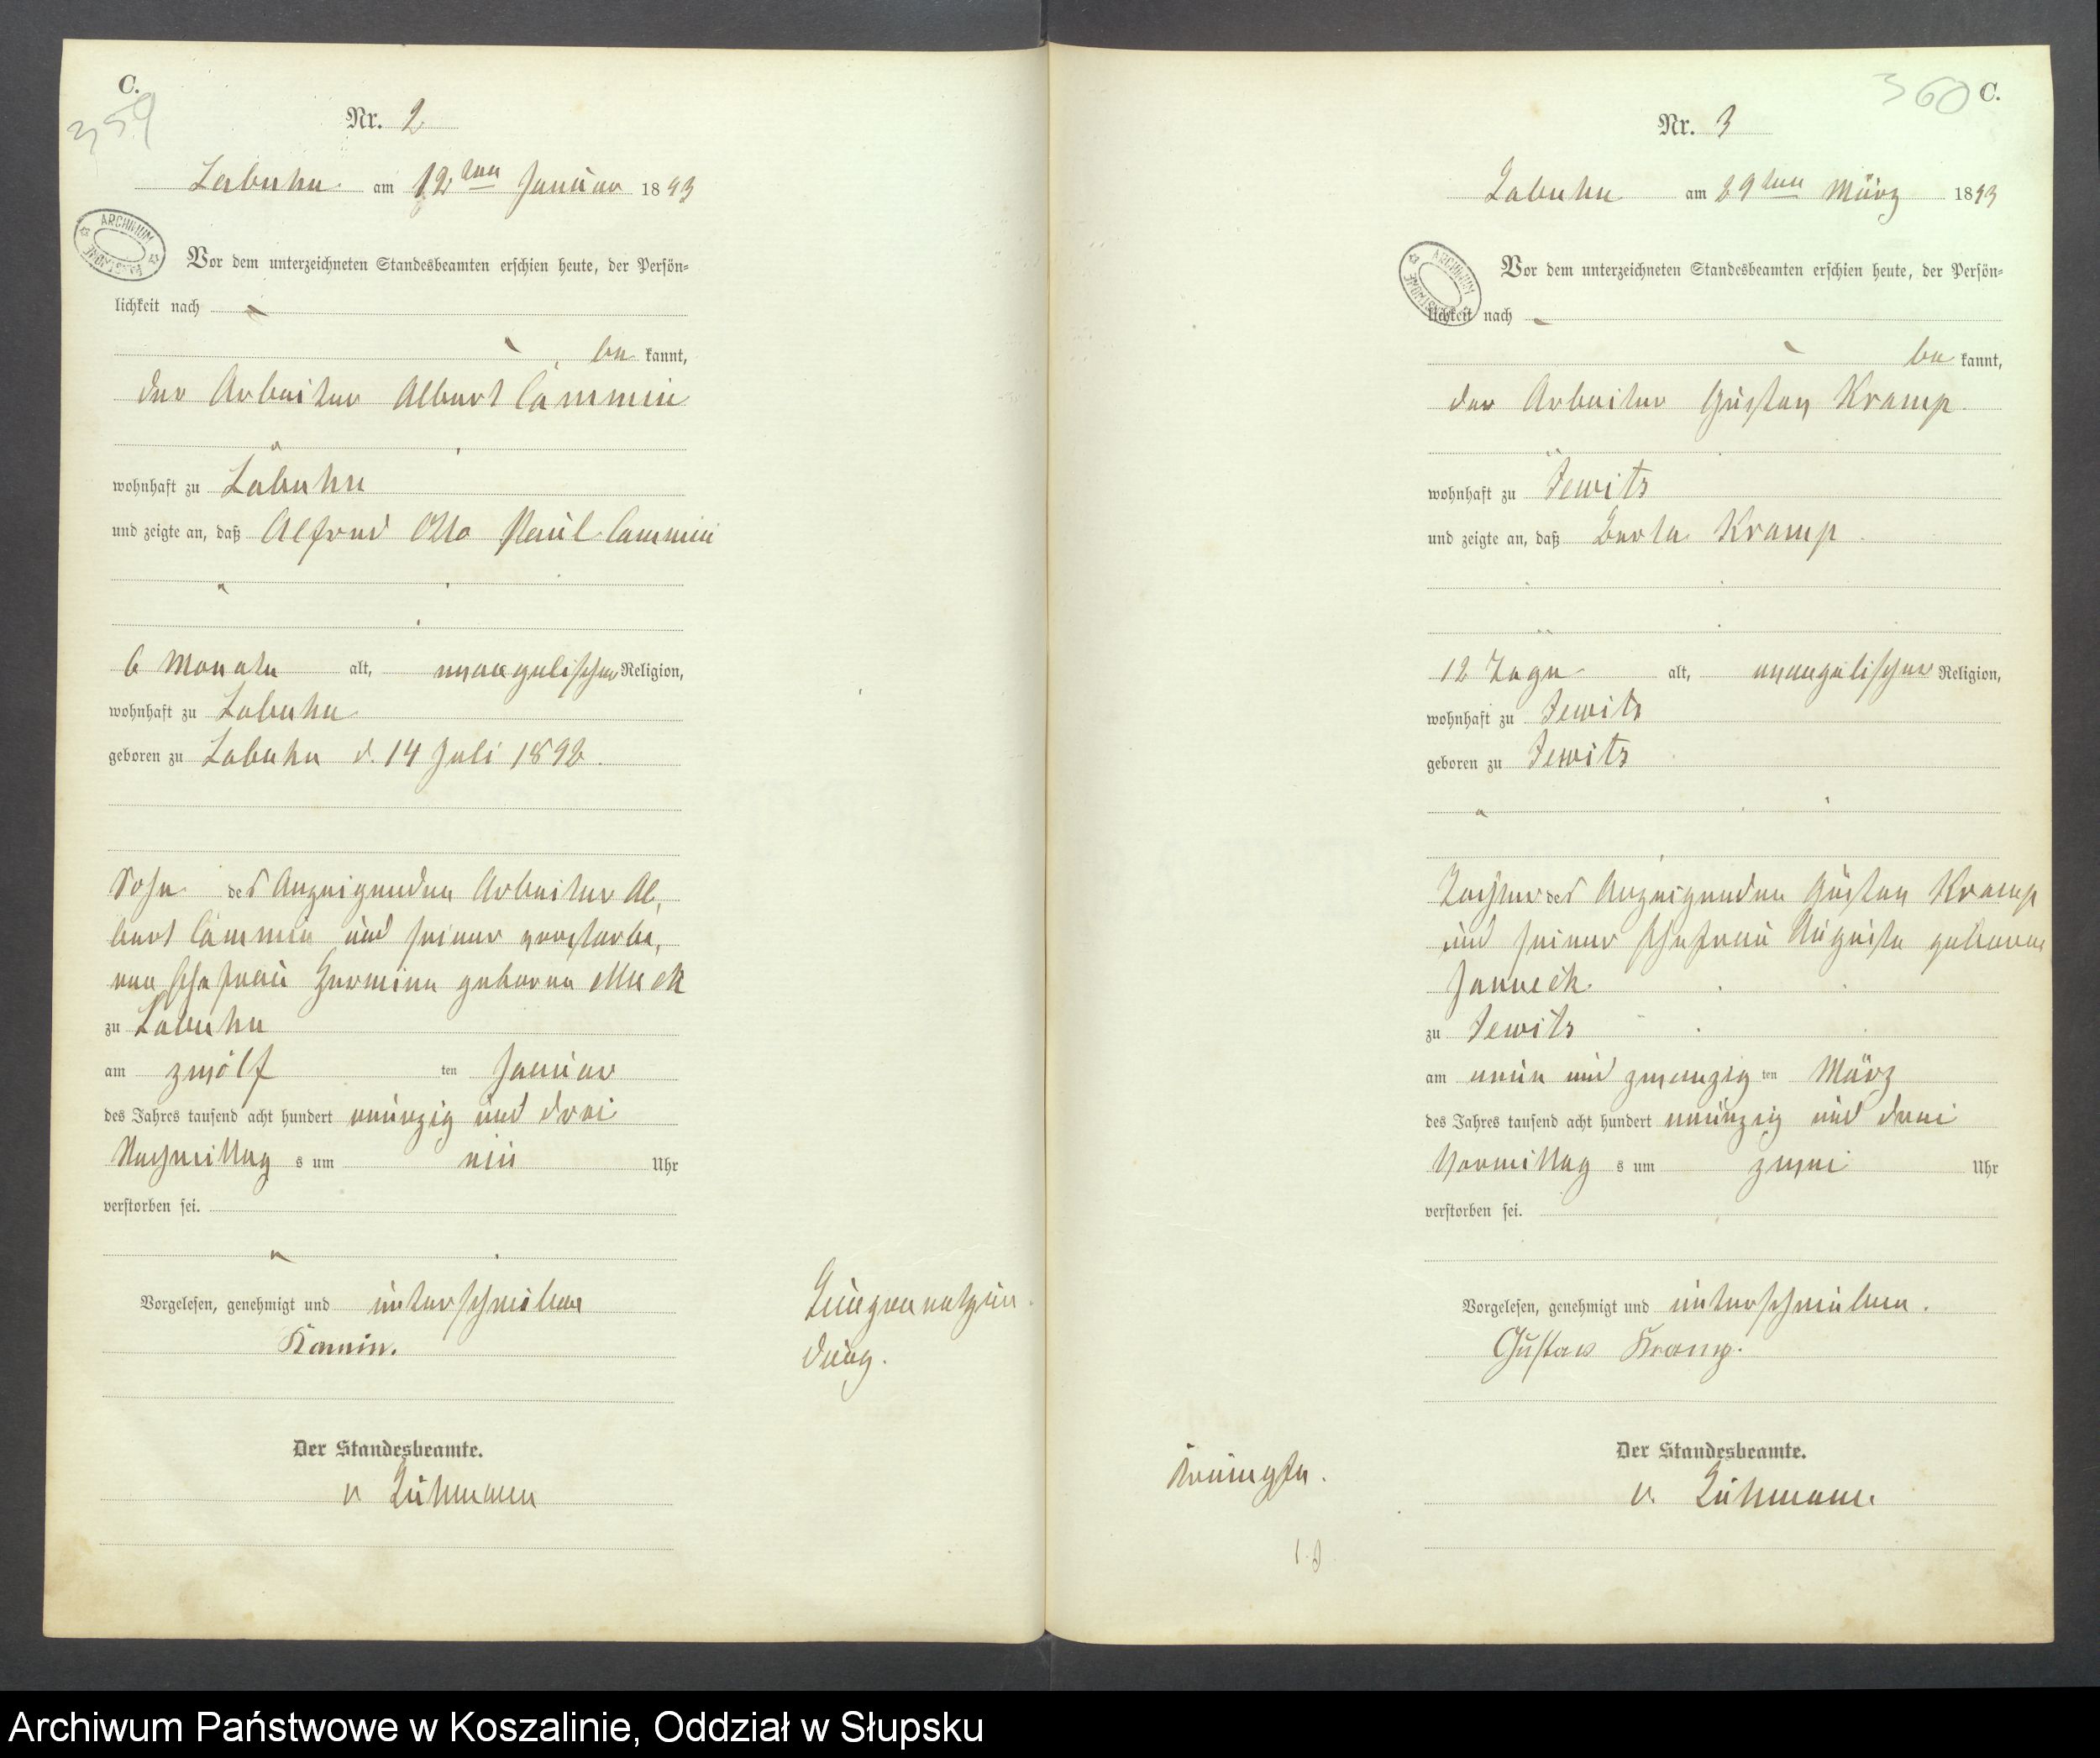 C.
359
Nr. 2
Labuhn am 12ten Januar 1893
ARCHIWUM
Vor dem unterzeichneten Standesbeamten erschien heute, der Persön=
lichkeit nach
be kannt,
der Arbeiter Albert Cammin
wohnhaft zu Labuhn
und zeigte an, daß Alfred Otto Paul Cammin
6 Monate alt, evangelischer Religion,
wohnhaft zu Labuhn
geboren zu Labuhn d. 14 Juli 1892.
Sohn des Anzeigenden Arbeiter Al,
bert Cammin und seiner verstorbe,
nen Ehefrau Hermine geborne
zu Labuhn
am zwölf ten Januar
des Jahres tausend acht hundert neunzig und drei
Nachmittag s um ein Uhr
verstorben sei.
Vorgelesen, genehmigt und unterschrieben
Kamin.
Der Standesbeamte.
v
Lungenentzün
dung.
360 C.
Nr. 3
Labuhn am 29ten März 1893
ARCHIWUM
Vor dem unterzeichneten Standesbeamten erschien heute, der Persön=
lichkeit nach
be kannt,
der Arbeiter Gustav Kramp
wohnhaft zu Jewitz
und zeigte an, daß Berta Kramp
12 Tage alt, evangelischer Religion,
wohnhaft zu Jewitz
geboren zu Jewitz
Tochter des Anzeigenden Gustav Kramp
und seiner Ehefrau Auguste geborne
Janneck
zu Jewitz
am neun und zwanzig ten März
des Jahres tausend acht hundert neunzig und drei
Vormittag s um zwei Uhr
verstorben sei.
Vorgelesen, genehmigt und unterschrieben.
Gustav Kramp.
Der Standesbeamte.
v.
Archiwum Państwowe w Koszalinie, Oddział w Słupsku